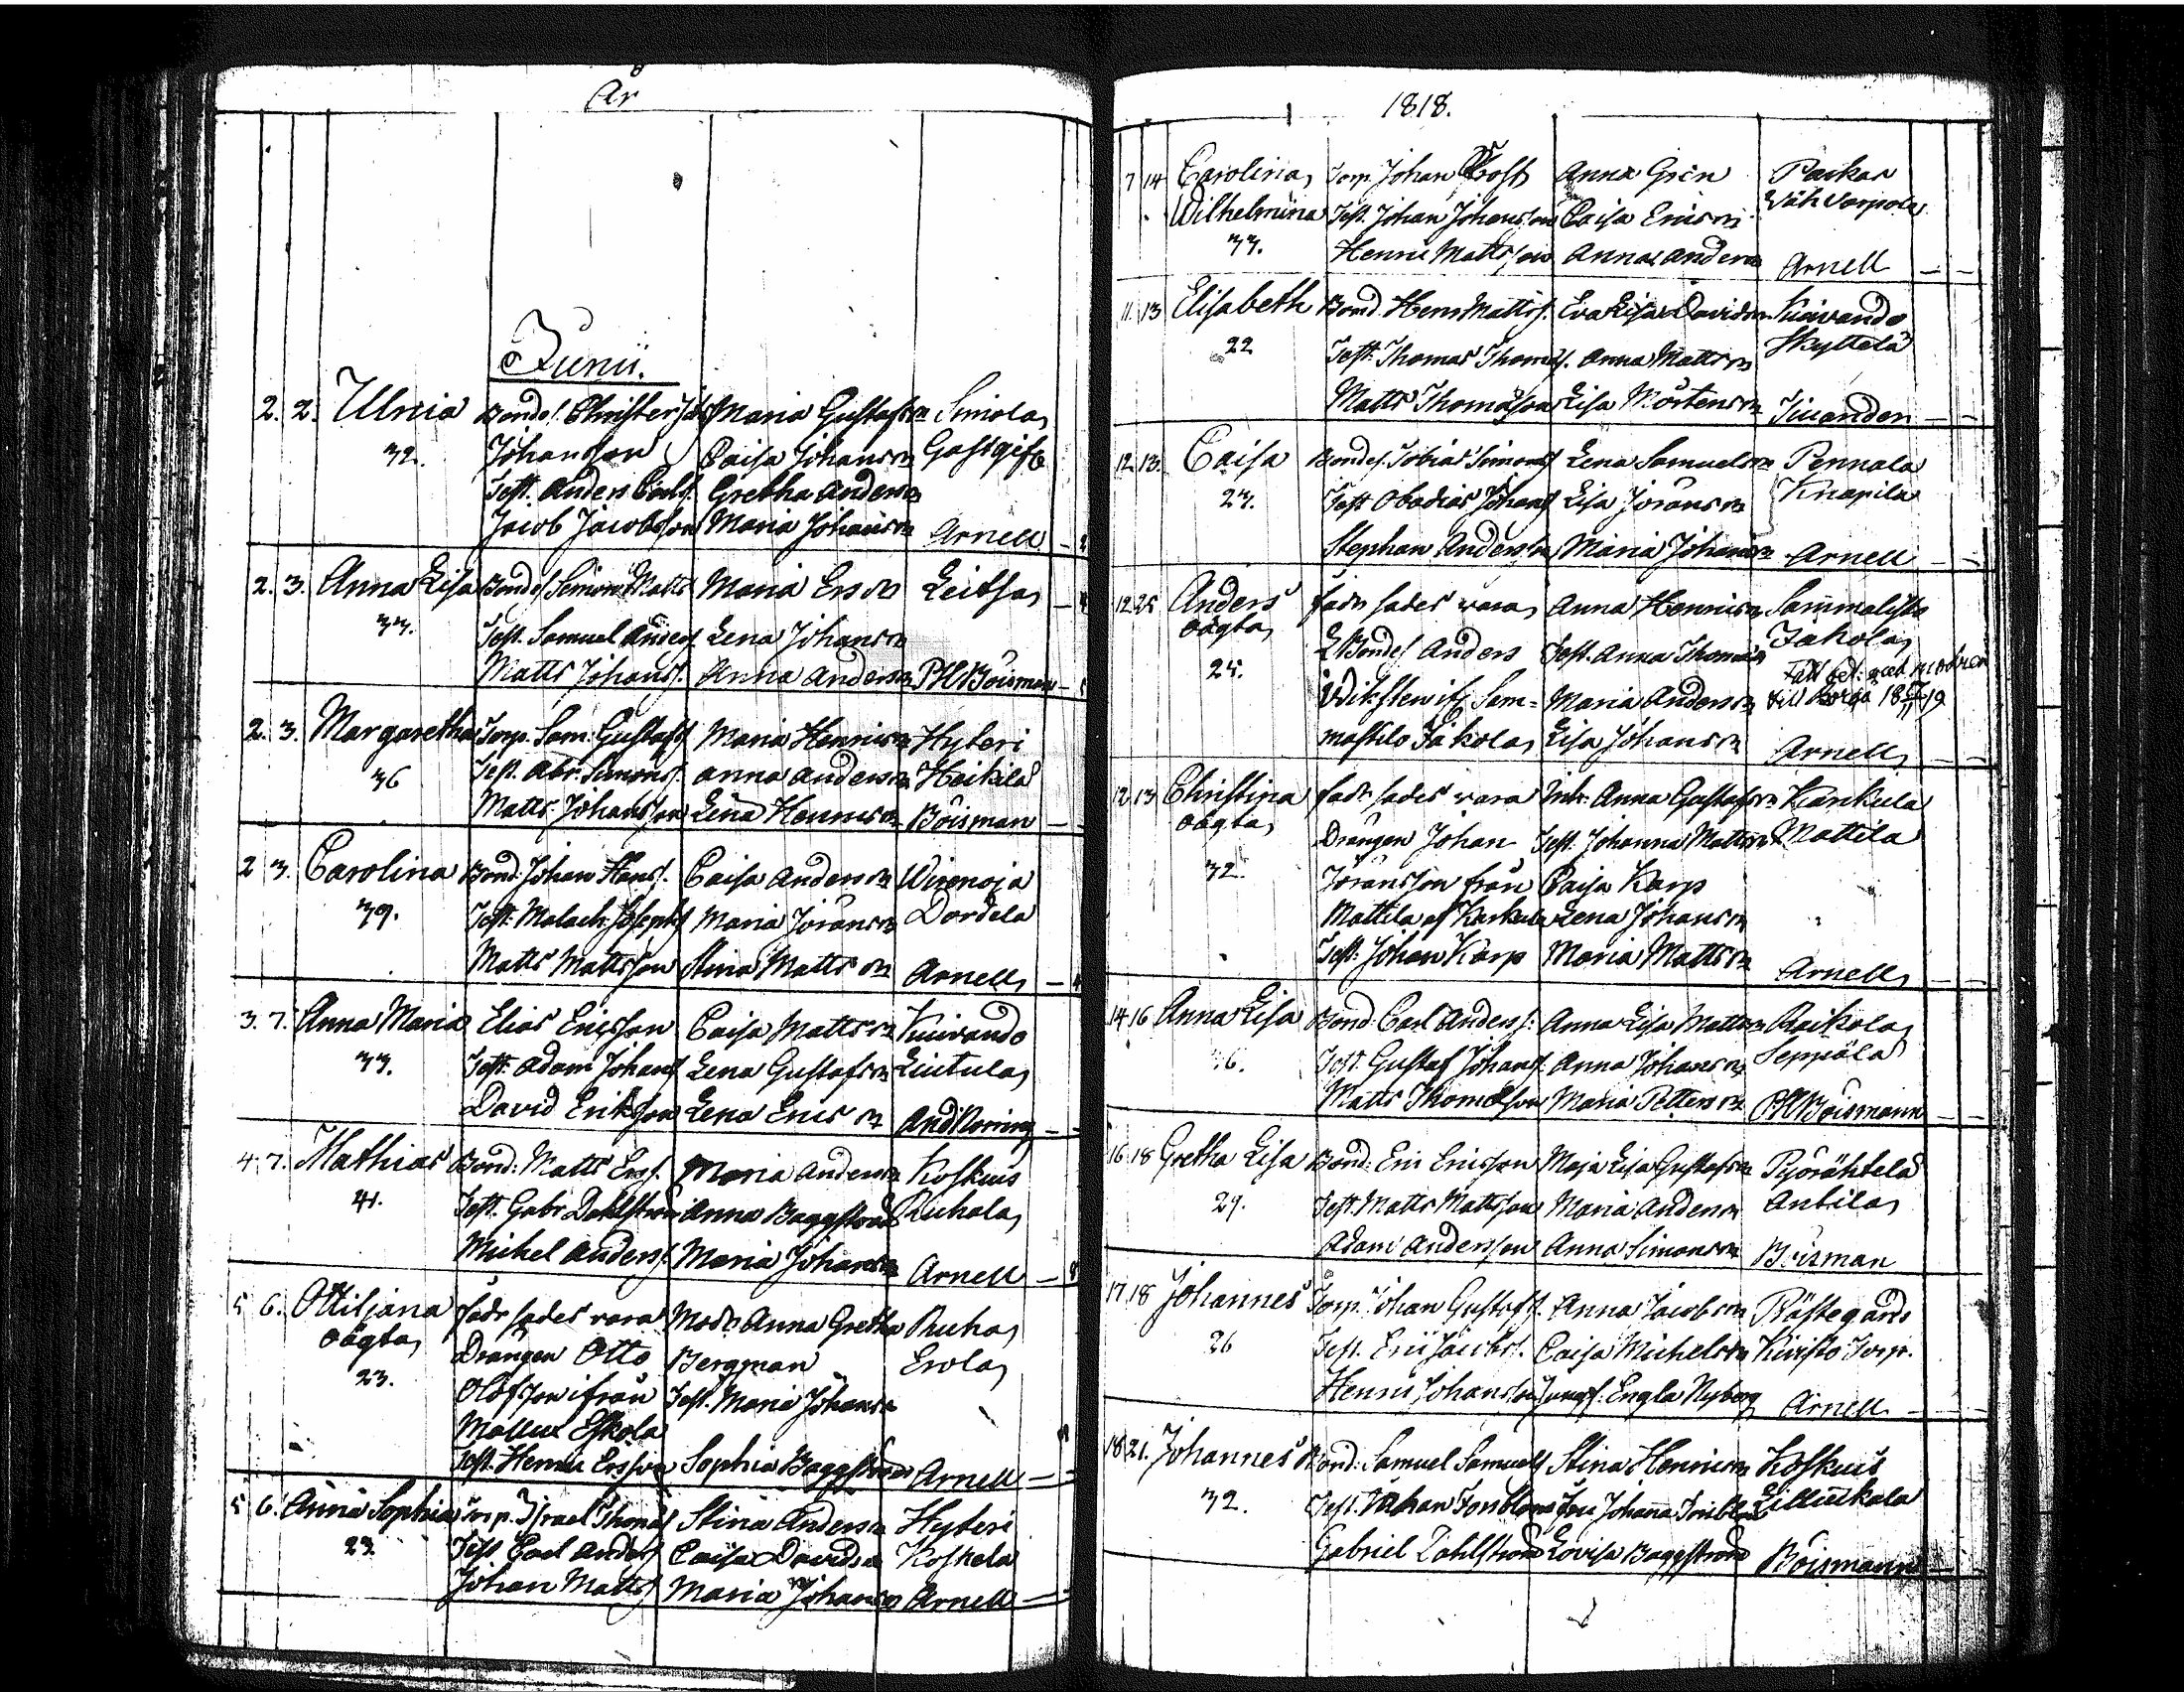 År
Junii.
2. 2. Ulrica Bonds. Christer Maria Gustafsdr Simola
32. Johansson Caisa Johansdr Gästgif
Test. Anders Carls. Gretha Andersdr
Jacob Jacobsson Maria Johansdr Arnell
2. 3. Anna Lisa Bonds Simon Matts Maria Ersdr Leitsa
33. Test. Samuel Anders. Lena Johansdr
Matts Johans. Anna Andersdr Boisman
2. 3. Margaretha Torp. Sam. Gustafs Maria Henricsdr Hyteri
36 Test. Abr. Simons. Anna Andersdr Heikilä
Matts Johansson Lena Henricsdr Boisman
2 3. Carolina Bond. Johan Hans. Caisa Andersdr Wirenoja
39. Test. Malach. Josephs Maria Jöransdr Dordela
Matts Mattsson Stina Mattsdr Arnell
3. 7. Anna Maria Elias Ericsson Caisa Mattsdr Kuivando
33. Test. Adam Johans Lena Gustafsdr Liutula
David Eriksson Lena Ericsdr And Noring
4. 7. Mathias Bond: Matts Ers. Maria Andersdr Koskuis
41. Test. Gabr. Dahlström Anna Baggström
Michel Anders. Maria Johansdr Arnell
5 6. Ottiljana fadr sades vara Modr Anna Gretha Ruha
oägta Drängen Otto Bergman Erola
23. Olofsson ifrån Test. Maria Johansdr
Eskola
Test. Henric Ersson Sophia Baggström Arnell
5 6. Anna Sophia Torp. Israel Thomas Stina Andersdr Hyteri
23 Test. Carl Anders Caisa Davidsdr Koskela
Johan Matts Maria Johansdr Arnell
1818.
7 14 Carolina Torp. Johan Anna Grén Paskar
Wilhelmina Test. Johan Johansson Caisa Ericsdr
33. Henric Mattsson Anna Andersdr Arnell
11. 13 Elisabeth Bond. Henr Matts. Eva Lisa Davidsdr Kuivando
22 Test. Thomas Thomas. Anna Mattsdr Skyttelä
Matts Thomasson Lisa Mårtensdr
12. 13. Caisa Bondes. Tobias Simons Lena Samuelsdr Pennala
23. Test. Obadias Johans Lisa Jöransdr Knapila
Stephan Andersson Maria Johansdr Arnell
12 25 Anders fadr sades vara Anna Henricsdr Sammalisto
oägta Bondes Anders Test. Anna Thomasdr Jakola
25. Maria Andersdr
Jakola Lisa Johansdr Arnell
12 13 Christina fadr sades vara Anna Gustafsdr Karkula
oägta Drängen Johan Test. Johanna Mattsdr Mattila
32. Jöransson från Caisa Karp
Mattila af Karkula Lena Johansdr
Test. Johan Karp Maria Mattsdr Arnell
14 16 Anna Lisa Bond. Carl Anders. Anna Lisa Mattsdr Raikola
Test. Gustaf Johans. Anna Johansdr Seppälä
Matts Thomasson Maria Pettersdr Boismann
16 18 Gretha Lisa Bond: Eric Ericsson Maja Lisa Gustafsdr Pyörähtelä
29. Test. Matts Mattsson Maria Andersdr Antila
Adam Andersson Anna Simonsdr Boisman
17 18 Johannes Torp. Johan Gustafs. Anna Jacobsdr Prästegårds
26 Test. Eric Jacobs. Caisa Michelsdr Kivisto Torp.
Henric Johansson Jungf. Engla Nyberg Arnell
18 21. Johannes Bond: Samuel Samuels Stina Henricsdr Koskuis
32.
Gabriel Dahlström Lovisa Baggström Boismann